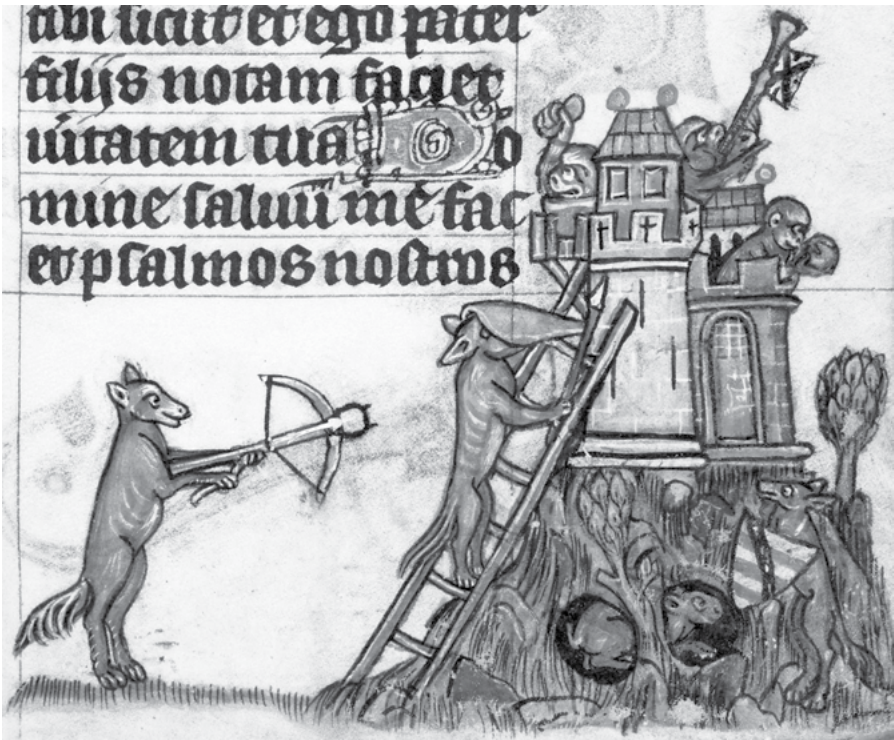 tibi sicut et ego pater
filijs notam faciet
uitatem tua Do
mine saluu mē fac
et psalmos nostros